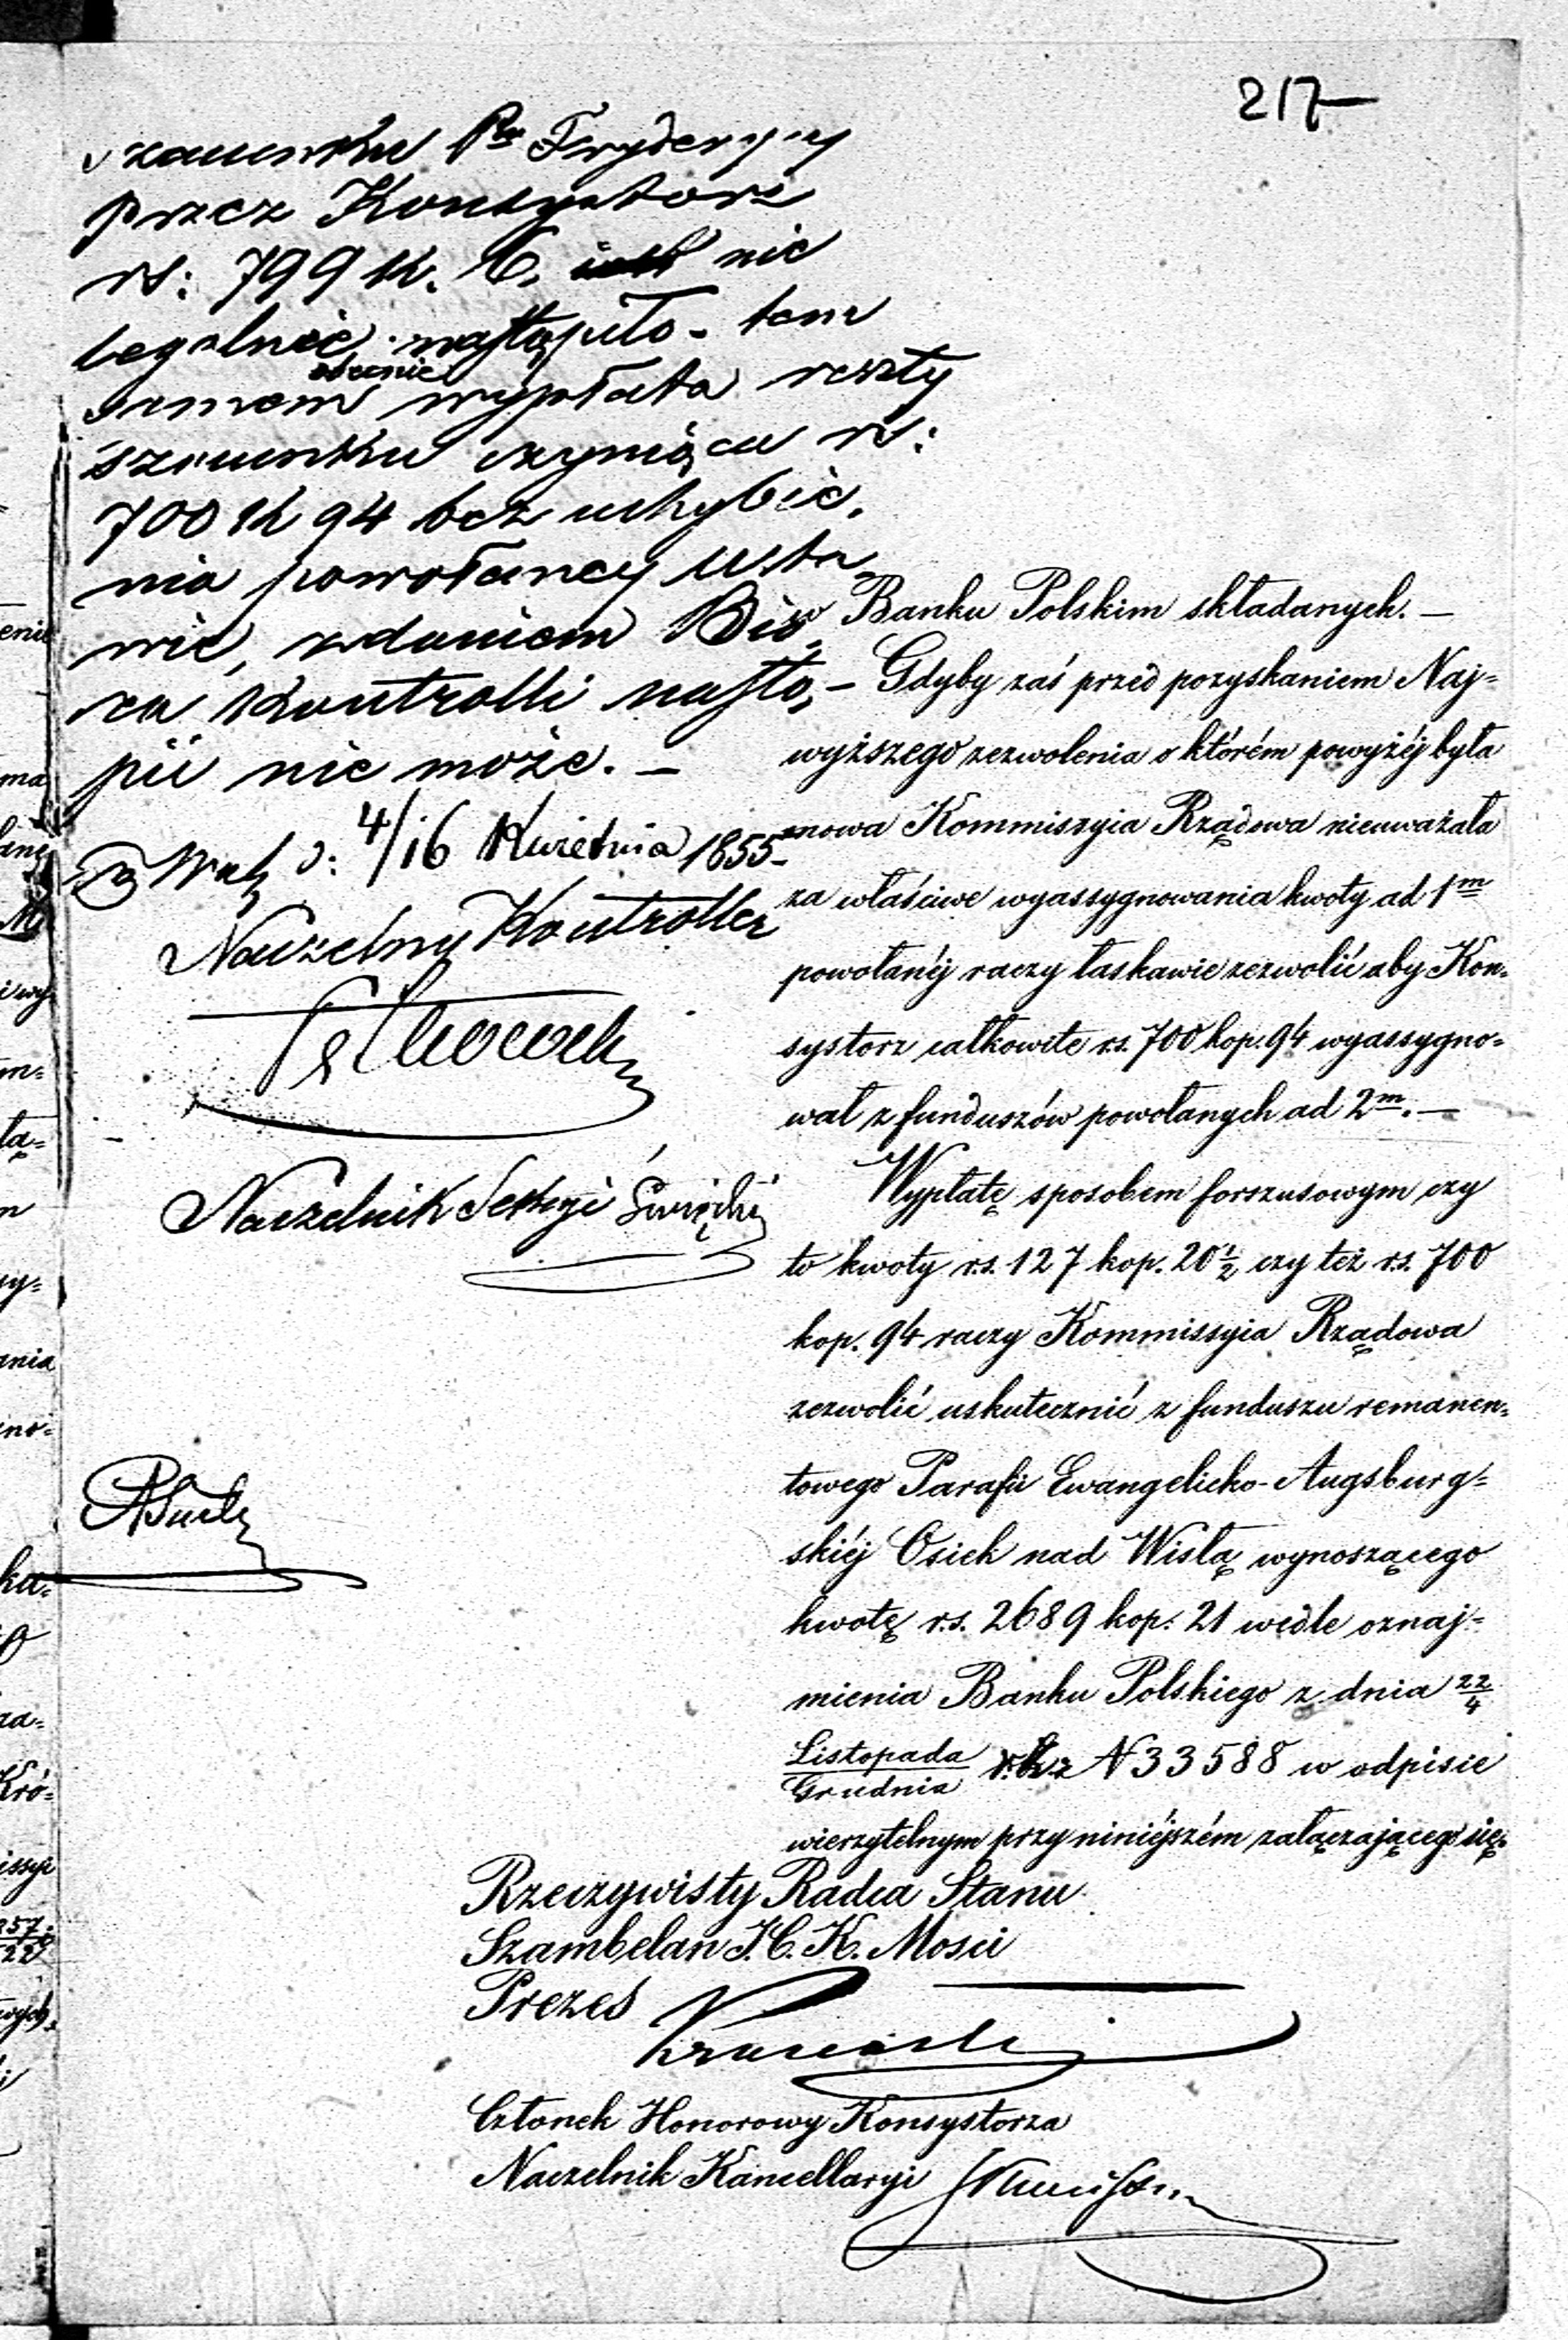 217
szacunku Pa Fryderycy
przez Konsystorz
rs: 799 k. 6. nie
legalnie nastąpiło - tem
samem obecnie wypłata reszty
szacunku czyniąca rs:
700 k 94 bez uchybie,
nia powołanej usta,
wie, zdaniem Bió,
ra Kontrolli nastą,
pić nie może. —
d: 4/16 Kwietnia 1855
Naczelny Kontroller
Naczelnik Sekcyi
w Banku Polskim składanych. —
— Gdyby zaś przed pozyskaniem Naj=
wyższego zezwolenia o którém powyżéj była
mowa Kommissyia Rządowa nieuważała
za właściwe wyassygnowania kwoty ad 1m
powołanéj raczy łaskawie zezwolić aby Kon=
systorz całkowite rs. 700 kop. 94 wyassygno=
wał z funduszów powołanych ad 2m. —
Wypłatę sposobem forszusowym czy
to kwoty r.s. 127 kop. 20 1/2 czy też r.s. 700
kop. 94 raczy Kommissyia Rządowa
zezwolić uskutecznić z funduszu remanen=
towego Parafii Ewangelicko-Augsburg=
skiéj Osiek nad Wisłą wynoszącego
kwotę r.s. 2689 kop. 21 wedle oznaj=
mienia Banku Polskiego z dnia 22/4
Listopada/Grudnia z N 33588 w odpisie
wierzytelnym przy niniéjszém załączającego się.
Rzeczywisty Radca Stanu
Szambelan J. C. K. Mości
Prezes
Członek Honorowy Konsystorza
Naczelnik Kancellaryi